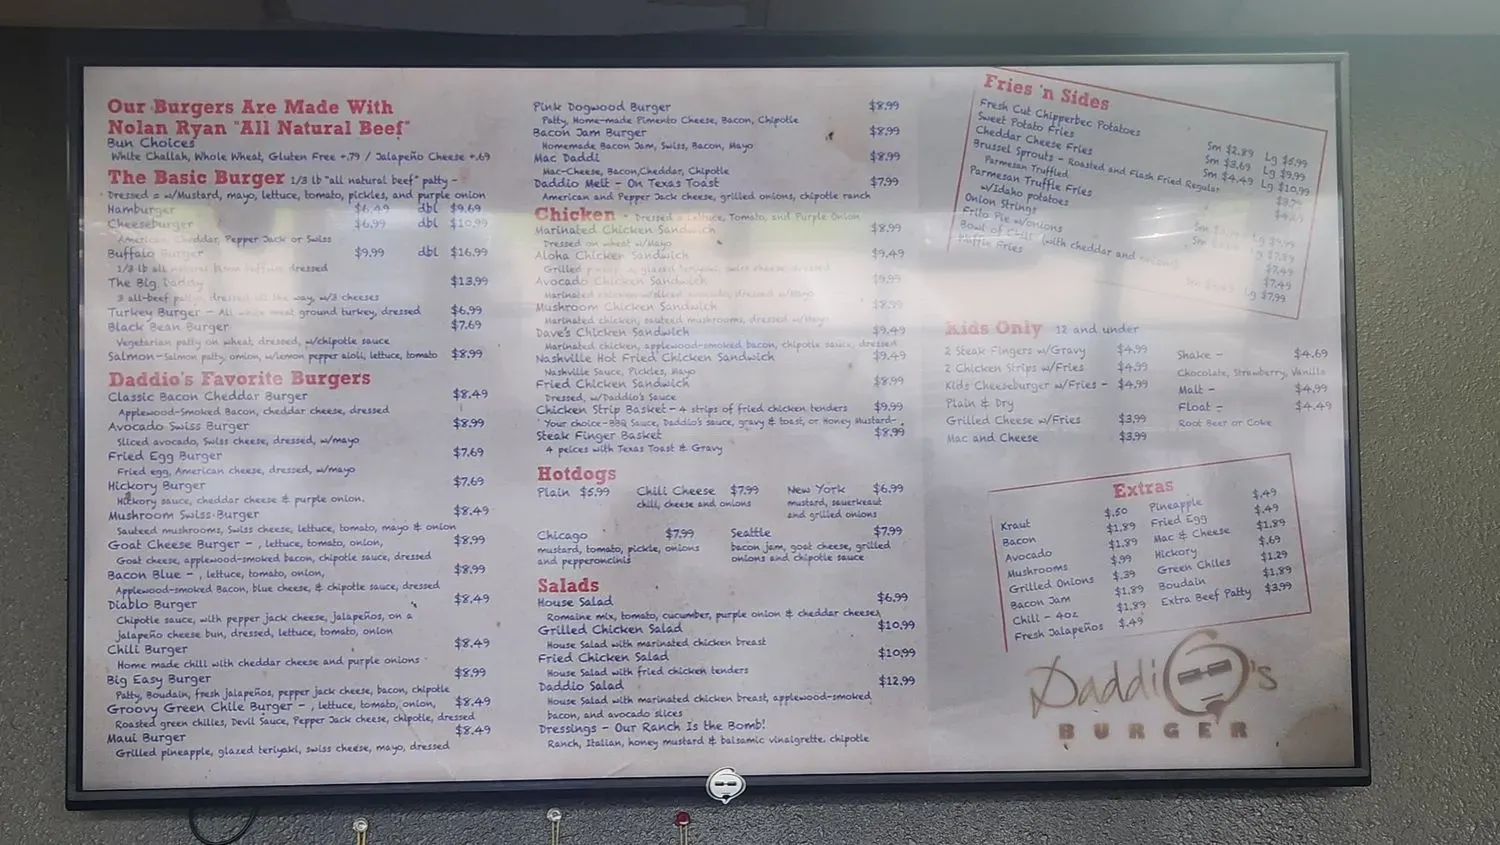 Our Burgers Are Made With
Nolan Ryan "All Natural Beef"
Bun Choices
White Challah, Whole Wheat, Gluten Free +.79 / Jalapeño Cheese +.69
The Basic Burger 1/3 lb "all natural beef" patty -
Dressed = w/Mustard, mayo, lettuce, tomato, pickles, and purple onion
Hamburger $6.49 dbl $9.69
Cheeseburger $6.99 dbl $10.99
American, Cheddar, Pepper Jack or Swiss
Buffalo Burger $9.99 dbl $16.99
1/3 lb all natural dressed
The Big Daddy $13.99
3 all-beef patties, dressed all the way, w/3 cheeses
Turkey Burger - All white meat ground turkey, dressed $6.99
Black Bean Burger $7.69
Vegetarian patty on wheat, dressed, w/chipotle sauce
Salmon-Salmon patty, onion, w/lemon pepper aioli, lettuce, tomato $8.99
Daddio's Favorite Burgers
Classic Bacon Cheddar Burger $8.49
Applewood-Smoked Bacon, cheddar cheese, dressed
Avocado Swiss Burger $8.99
Sliced avocado, Swiss cheese, dressed, w/mayo
Fried Egg Burger $7.69
Fried egg, American cheese, dressed, w/mayo
Hickory Burger $7.69
Hickory sauce, cheddar cheese & purple onion.
Mushroom Swiss Burger $8.49
Sauteed mushrooms, Swiss cheese, lettuce, tomato, mayo & onion
Goat Cheese Burger - , lettuce, tomato, onion, $8.99
Goat cheese, applewood-smoked bacon, chipotle sauce, dressed
Bacon Blue - , lettuce, tomato, onion, $8.99
Applewood-smoked Bacon, blue cheese, & chipotle sauce, dressed
Diablo Burger $8.49
Chipotle sauce, with pepper jack cheese, jalapeños, on a
jalapeño cheese bun, dressed, lettuce, tomato, onion
Chili Burger $8.49
Home made chili with cheddar cheese and purple onions
Big Easy Burger $8.99
Patty, Boudain, fresh jalapeños, pepper jack cheese, bacon, chipotle
Groovy Green Chile Burger - , lettuce, tomato, onion, $8.49
Roasted green chilles, Devil Sauce, Pepper Jack cheese, chipotle, dressed
Maui Burger $8.49
Grilled pineapple, glazed teriyaki, swiss cheese, mayo, dressed
Pink Dogwood Burger $8.99
Patty, Home-made Pimento Cheese, Bacon, Chipotle
Bacon Jam Burger $8.99
Homemade Bacon Jam, Swiss, Bacon, Mayo
Mac Daddi $8.99
Mac-Cheese, Bacon,Cheddar, Chipotle
Daddio Melt - On Texas Toast $7.99
American and Pepper Jack cheese, grilled onions, chipotle ranch
Chicken - Dressed = Lettuce, Tomato, and Purple Onion
Marinated Chicken Sandwich $8.99
Dressed on wheat w/Mayo
Aloha Chicken Sandwich $9.49
Grilled glazed teriyaki, swiss cheese, dressed
Avocado Chicken Sandwich $9.99
Marinated chicken w/sliced avocado, dressed w/Mayo
Mushroom Chicken Sandwich $8.99
Marinated chicken, sauteed mushrooms, dressed w/Mayo
Dave's Chicken Sandwich $9.49
Marinated chicken, applewood-smoked bacon, chipotle sauce, dressed
Nashville Hot Fried Chicken Sandwich $9.49
Nashville Sauce, Pickles, Mayo
Fried Chicken Sandwich $8.99
Dressed, w/Daddio's Sauce
Chicken Strip Basket - 4 strips of fried chicken tenders $9.99
Your choice-BBQ Sauce, Daddio's sauce, gravy & toast, or Honey Mustard-
Steak Finger Basket $8.99
4 peices with Texas Toast & Gravy
Hotdogs
Plain $5.99 Chili Cheese $7.99 New York $6.99
chili, cheese and onions mustard, sauerkeaut
and grilled onions
Chicago $7.99 Seattle $7.99
mustard, tomato, pickle, onions bacon jam, goat cheese, grilled
and pepperoncinis onions and chipotle sauce
Salads
House Salad $6.99
Romaine mix, tomato, cucumber, purple onion & cheddar cheese
Grilled Chicken Salad $10.99
House Salad with marinated chicken breast
Fried Chicken Salad $10.99
House Salad with fried chicken tenders
Daddio Salad $12.99
House Salad with marinated chicken breast, applewood-smoked
bacon, and avocado slices
Dressings - Our Ranch Is the Bomb!
Ranch, Italian, honey mustard & balsamic vinaigrette, chipotle
Fries 'n Sides
Fresh Cut Chipperbec Potatoes Sm $2.89 Lg $5.99
Sweet Potato Fries Sm $3.69 Lg $9.99
Cheddar Cheese Fries Sm $4.49 Lg $10.99
Brussel Sprouts - Roasted and Flash Fried Regular
Parmesan Truffled
Parmesan Truffle Fries
w/Idaho potatoes
Onion Strings Lg $9.99
Frito Pie w/onions $7.49
Bowl of Chili (with cheddar and onions) $7.49
Waffle Fries Lg $7.99
Kids Only 12 and under
2 Steak Fingers w/Gravy $4.99
2 Chicken Strips w/Fries $4.99
Kids Cheeseburger w/Fries - $4.99
Plain & Dry
Grilled Cheese w/Fries $3.99
Mac and Cheese $3.99
Shake - $4.69
Chocolate, Strawberry, Vanilla
Malt - $4.99
Float - $4.49
Root Beer or Coke
Extras
Kraut $.50
Bacon $1.89
Avocado $1.89
Mushrooms $.99
Grilled Onions $.39
Bacon Jam $1.89
Chili - 4oz $1.89
Fresh Jalapeños $.49
Pineapple $.49
Fried Egg $.49
Mac & Cheese $1.89
Hickory $.69
Green Chiles $1.29
Boudain $1.89
Extra Beef Patty $3.99
Daddio's
BURGER